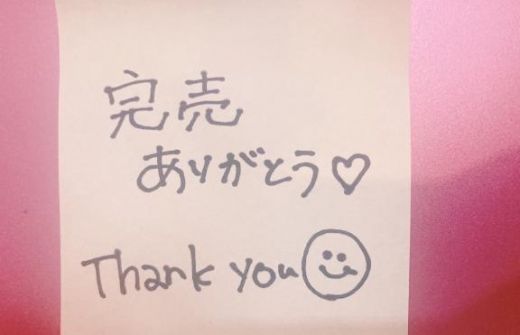 完売
ありがとう♡
Thank you☺